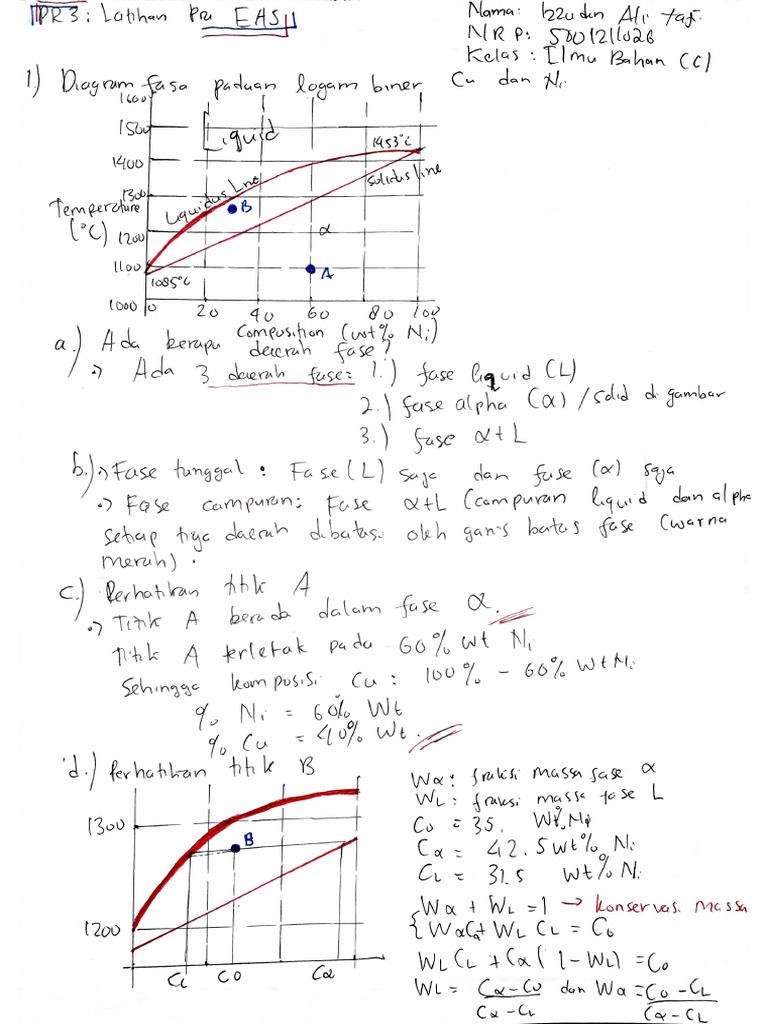 PR3: Latihan Pra EAS
Nama: Izzudan Ali Taj.
NRP: 5001211026
Kelas: Ilmu Bahan (C)
1.) Diagram fasa paduan logam biner Cu dan Ni
1600
1500
1400
1300
1200
1100
1000
Temperature
(°C)
Liquid
1453°C
Liquidus Line
Solidus line
B
α
A
1085°C
0 20 40 60 80 100
Composition (wt% Ni)
a.) Ada berapa daerah fase?
Ada 3 daerah fase: 1.) fase liquid (L)
2.) fase alpha (α) / solid di gambar
3.) fase α+L
b.) Fase tunggal : Fase (L) saja dan fase (α) saja
Fase campuran: Fase α+L (campuran liquid dan alpha
setiap tiga daerah dibatasi oleh garis batas fase (warna
merah).
c.) Perhatikan titik A
Titik A berada dalam fase α.
titik A terletak pada 60% wt Ni
Sehingga komposisi Cu: 100% - 60% wt Ni
% Ni = 60% Wt
% Cu = 40% Wt.
d.) Perhatikan titik B
1300
1200
B
CL Co Cα
Wα: fraksi massa fase α
WL: fraksi massa fase L
Co = 35. Wt% Ni
Cα = 42.5 wt% Ni
CL = 31.5 wt% Ni
Wα + WL = 1 → konservasi massa
WαCα + WL CL = Co
WL CL + Cα (1-WL) = Co
WL = Cα-Co / Cα-CL dan Wα = Co-CL / Cα-CL